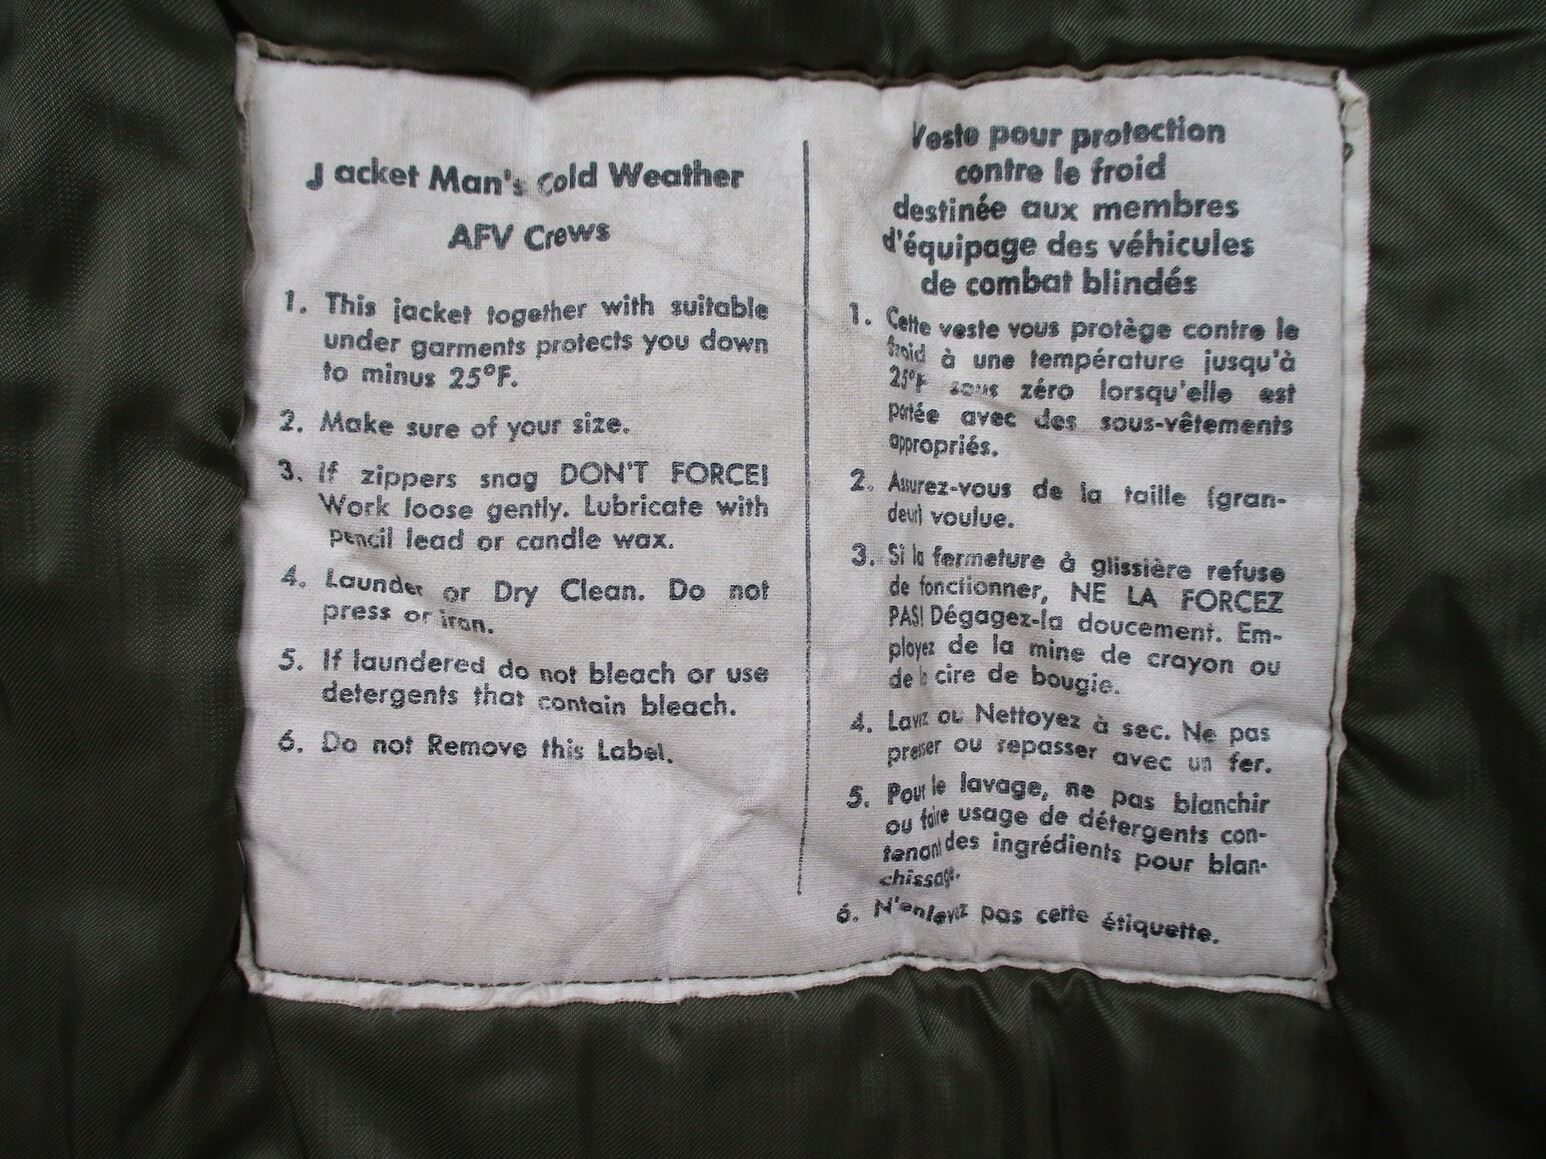 Jacket Man's Cold Weather
AFV Crews
1. This jacket together with suitable
under garments protects you down
to minus 25°F.
2. Make sure of your size.
3. If zippers snag DON'T FORCE!
Work loose gently. Lubricate with
pencil lead or candle wax.
4. Launder or Dry Clean. Do not
press or iron.
5. If laundered do not bleach or use
detergents that contain bleach.
6. Do not Remove this Label.
Veste pour protection
contre le froid
destinée aux membres
d'équipage des véhicules
de combat blindés
1. Cette veste vous protège contre le
froid à une température jusqu'à
25°F sous zéro lorsqu'elle est
portée avec des sous-vêtements
appropriés.
2. Assurez-vous de la taille (gran-
deur) voulue.
3. Si la fermeture à glissière refuse
de fonctionner, NE LA FORCEZ
PAS! Dégagez-la doucement. Em-
ployez de la mine de crayon ou
de la cire de bougie.
4. Lavez ou Nettoyez à sec. Ne pas
presser ou repasser avec un fer.
5. Pour le lavage, ne pas blanchir
ou faire usage de détergents con-
tenant des ingrédients pour blan-
chissage.
6. N'enlevez pas cette étiquette.